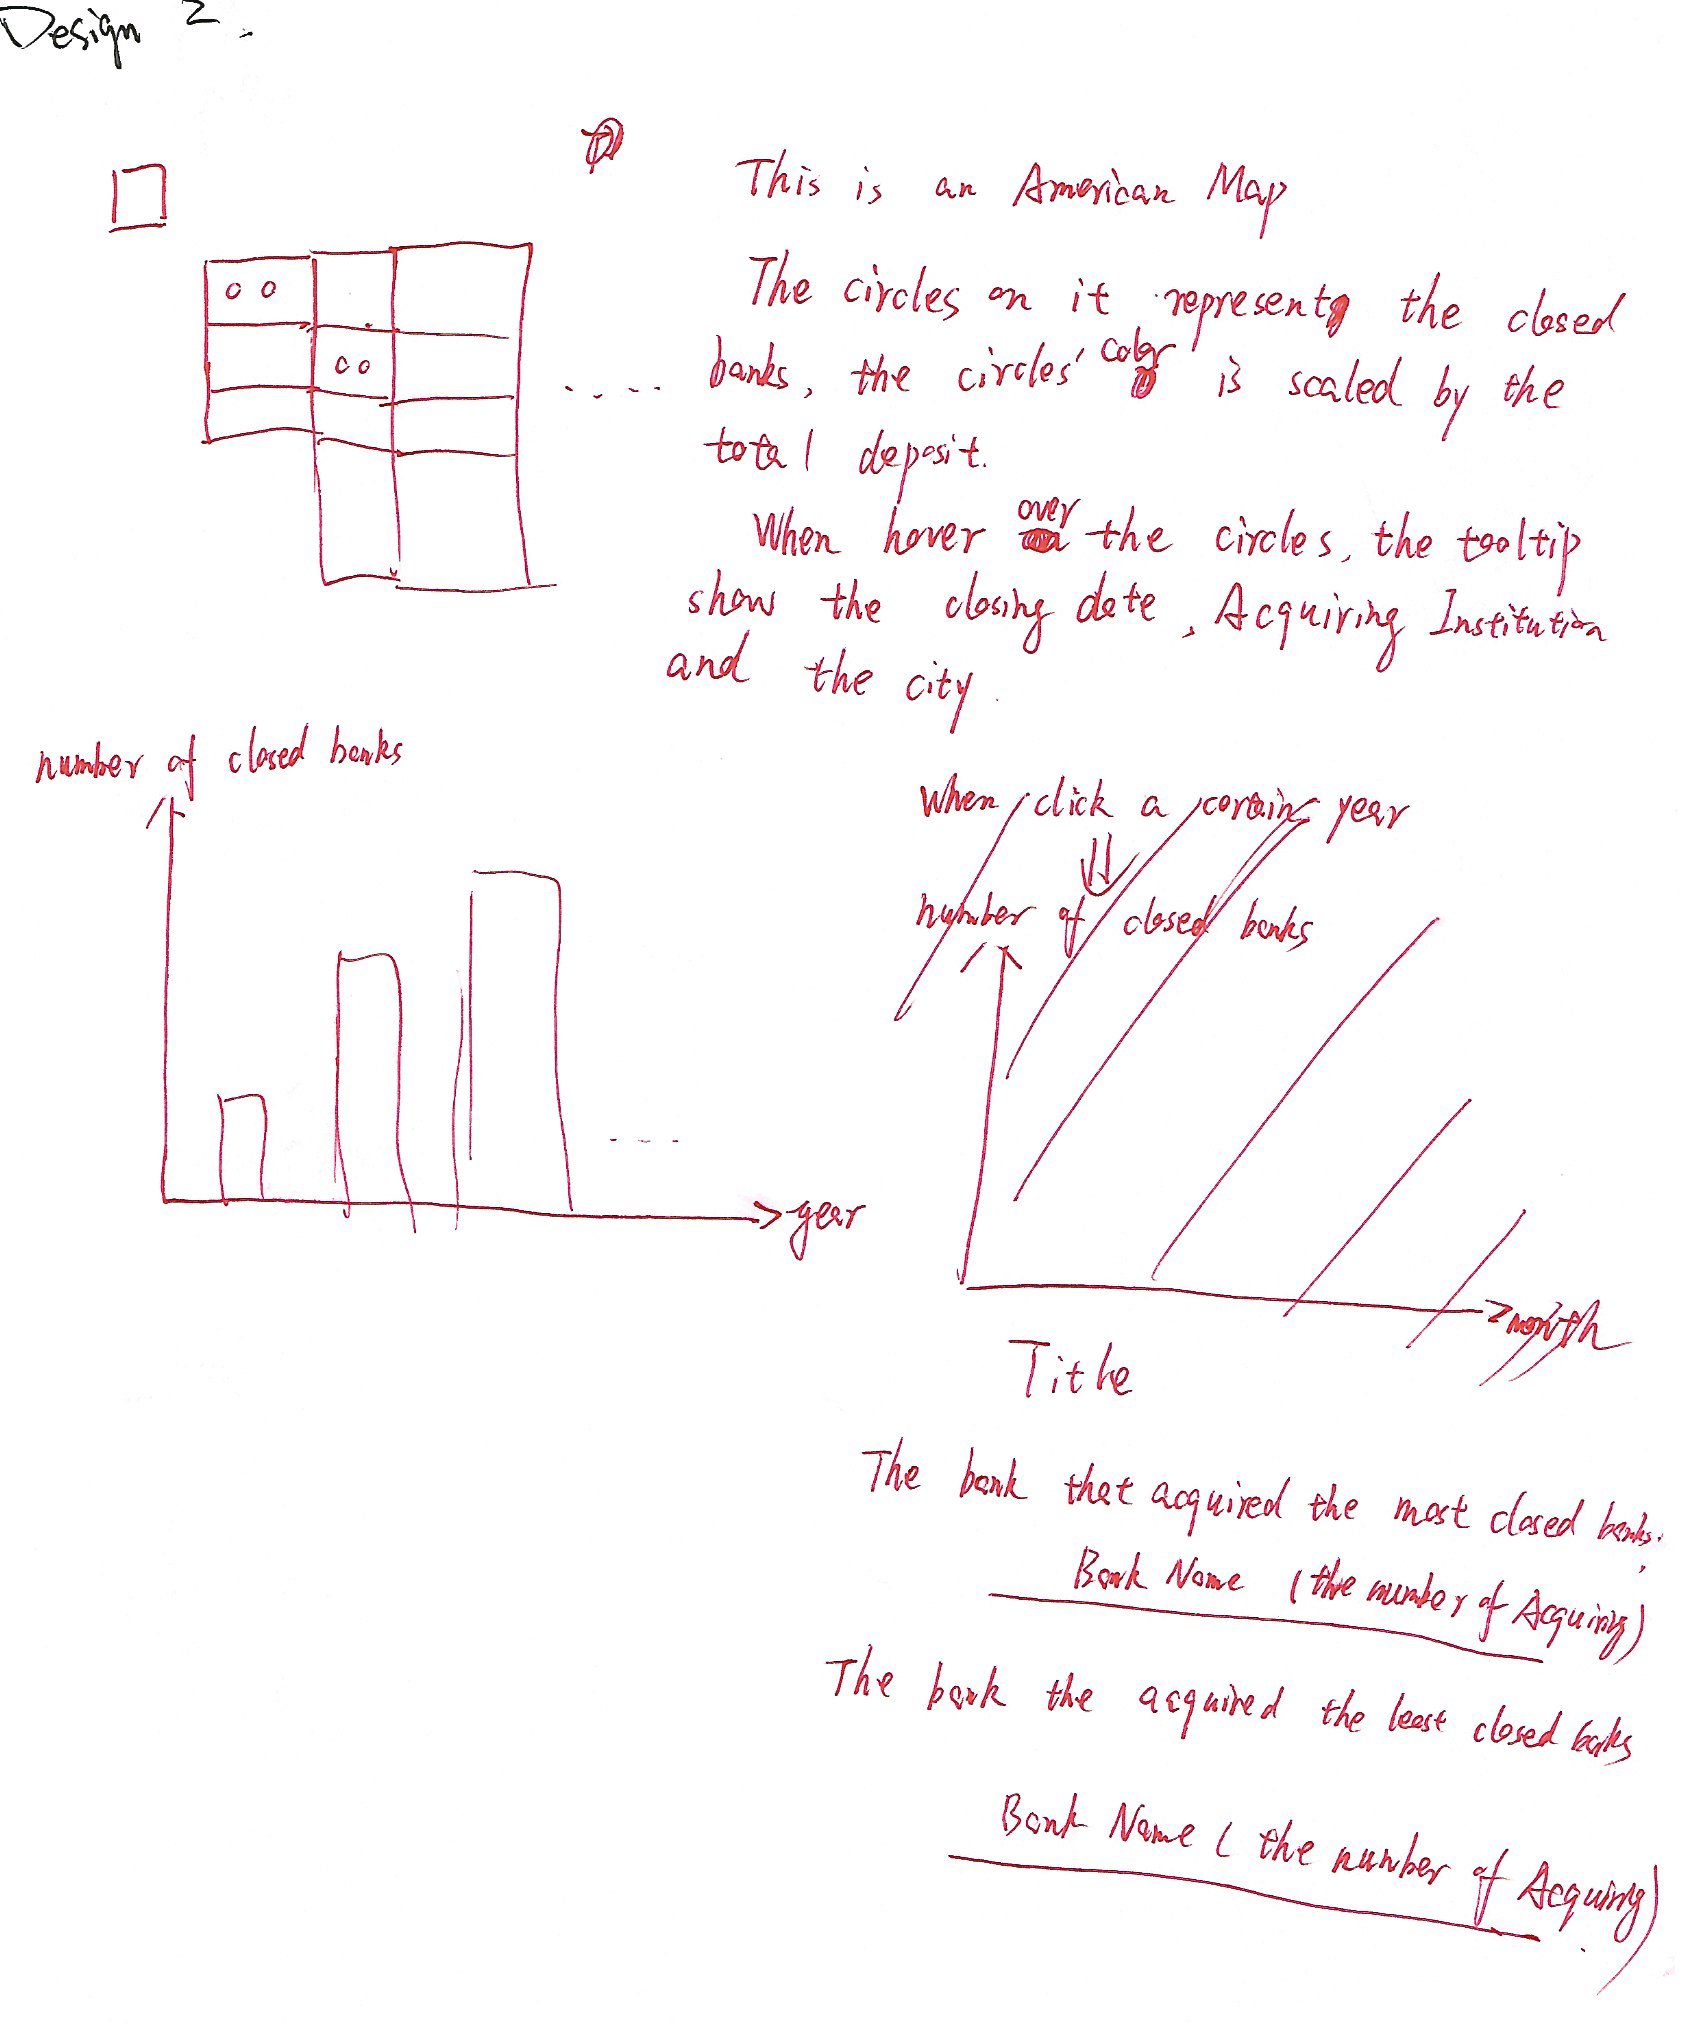 Design 2.
This is an American Map
The circles on it represent the closed
banks, the circles' color is scaled by the
total deposit.
When hover over the circles, the tooltip
show the closing date, Acquiring Institution
and the city.
number of closed banks
year
When click a certain year
number of closed banks
month
Title
The bank that acquired the most closed banks.
Bank Name (the number of Acquiring)
The bank the acquired the least closed banks
Bank Name (the number of Acquiring)